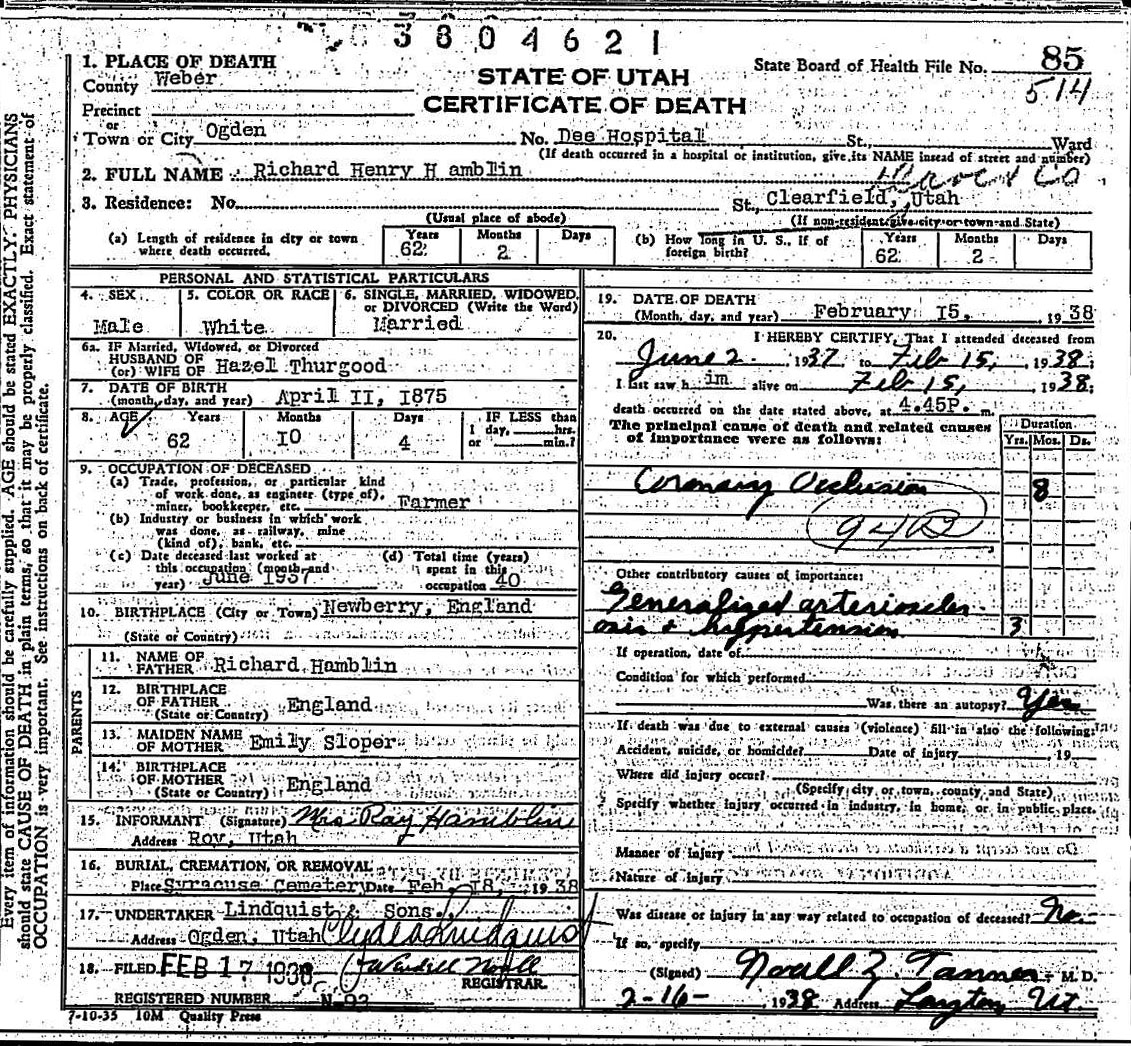 3804621
1. PLACE OF DEATH
County Weber
STATE OF UTAH
CERTIFICATE OF DEATH
State Board of Health File No. 85
514
Precinct
or
Town or City Ogden No. Dee Hospital St., Ward
(If death occurred in a hospital or institution, give its NAME insead of street and number)
2. FULL NAME Richard Henry H amblin
3. Residence: No. St., Clearfield, Utah
(Usual place of abode) (If non-resident give city or town and State)
(a) Length of residence in city or town where death occurred. Years 62 Months 2 Days
(b) How long in U. S., if of foreign birth? Years 62 Months 2 Days
PERSONAL AND STATISTICAL PARTICULARS
4. SEX Male
5. COLOR OR RACE White
6. SINGLE, MARRIED, WIDOWED, or DIVORCED (Write the Word) Married
6a. IF Married, Widowed, or Divorced
HUSBAND OF
(or) WIFE OF Hazel Thurgood
7. DATE OF BIRTH
(month, day, and year) April II, I875
8. AGE Years 62 Months IO Days 4 IF LESS than I day, hrs. or min.?
9. OCCUPATION OF DECEASED
(a) Trade, profession, or particular kind
of work done, as engineer (type of),
miner, bookkeeper, etc. Farmer
(b) Industry or business in which work
was done, as railway, mine
(kind of), bank, etc.
(c) Date deceased last worked at
this occupation (month and
year) June 1937
(d) Total time (years)
spent in this
occupation 40
10. BIRTHPLACE (City or Town) Newberry, England
(State or Country)
PARENTS
11. NAME OF
FATHER Richard Hamblin
12. BIRTHPLACE
OF FATHER England
(State or Country)
13. MAIDEN NAME
OF MOTHER Emily Sloper
14. BIRTHPLACE
OF MOTHER England
(State or Country)
15. INFORMANT (Signature) Mrs Ray Hamblin
Address Roy, Utah
16. BURIAL, CREMATION, OR REMOVAL
Place Syracuse Cemetery Date Feb, I8, 1938
17. UNDERTAKER Lindquist & Sons
Address Ogden, Utah Clyde Lindquist
18. FILED FEB 17 1938
REGISTRAR.
REGISTERED NUMBER N-93
7-10-35 10M Quality Press
19. DATE OF DEATH
(Month, day, and year) February I5, 1938
20. I HEREBY CERTIFY, That I attended deceased from
June 2 1937 to Feb 15, 1938;
I last saw h im alive on Feb 15, 1938;
death occurred on the date stated above, at 4.45P. m.
The principal cause of death and related causes
of importance were as follows:
Duration
Yrs. Mos. Ds.
Coronary Occlusion 8
94B
Other contributory causes of importance:
Generalized arterioscler-
osis + hypertension 3
If operation, date of
Condition for which performed
Was there an autopsy? Yes
If death was due to external causes (violence) fill in also the following:
Accident, suicide, or homicide? Date of injury , 19
Where did injury occur?
(Specify city or town, county and State)
Specify whether injury occurred in industry, in home, or in public place.
Manner of injury
Nature of injury
Was disease or injury in any way related to occupation of deceased? No.
If so, specify
(Signed) Noall Z. Tanner M. D.
2-16- 1938 Address Layton, Ut.
Every item of information should be carefully supplied. AGE should be stated EXACTLY. PHYSICIANS
should state CAUSE OF DEATH in plain terms, so that it may be properly classified. Exact statement of
OCCUPATION is very important. See instructions on back of certificate.